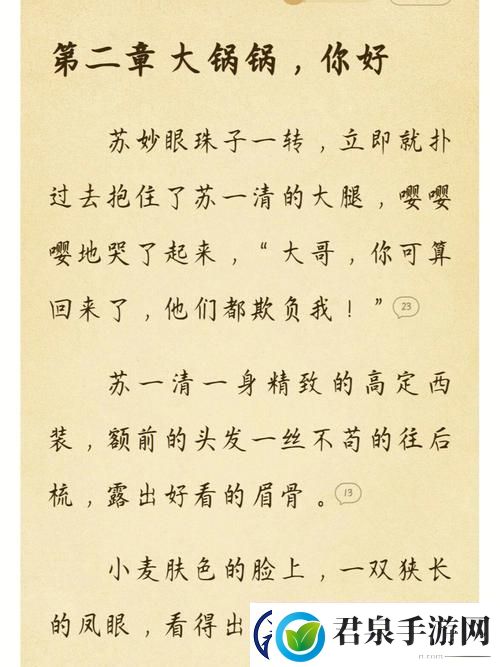 第二章 大锅锅，你好
苏妙眼珠子一转，立即就扑
过去抱住了苏一清的大腿，嘤嘤
嘤地哭了起来，“大哥，你可算
回来了，他们都欺负我！”23
苏一清一身精致的高定西
装，额前的头发一丝不苟的往后
梳，露出好看的眉骨。13
小麦肤色的脸上，一双狭长
的凤眼，看得出
君泉手游网